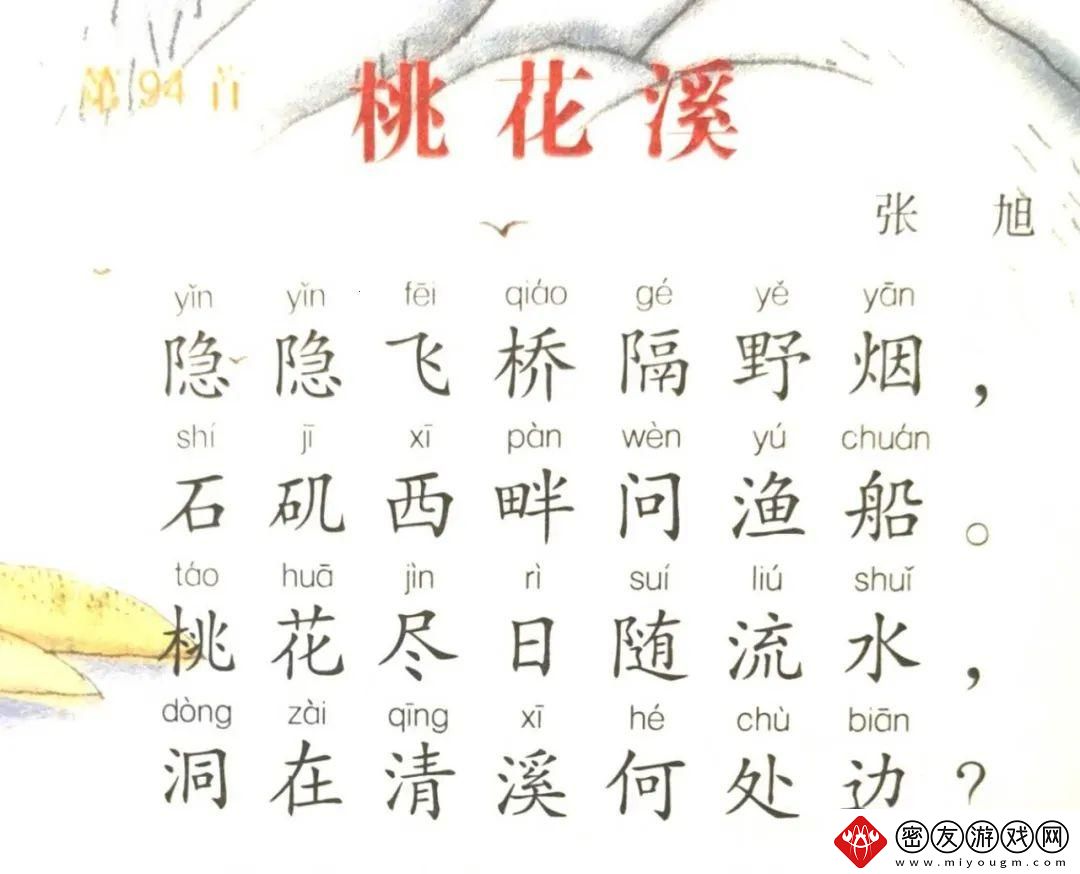 第94首
桃花溪
张 旭
yǐn yǐn fēi qiáo gé yě yān
隐隐飞桥隔野烟，
shí jī xī pàn wèn yú chuán
石矶西畔问渔船。
táo huā jìn rì suí liú shuǐ
桃花尽日随流水，
dòng zài qīng xī hé chù biān
洞在清溪何处边？
密友游戏网
www.miyougm.com